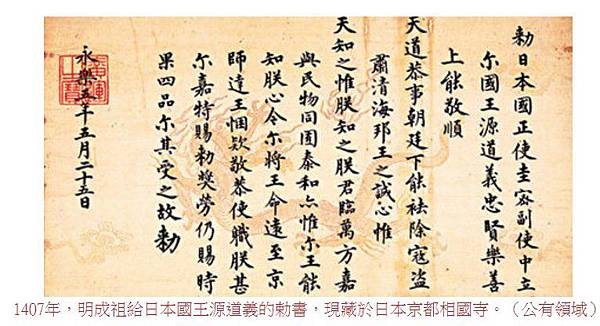 勅日本國正使圭密副使中立
尒國王源道義忠賢樂善
上能敬順
天道恭事朝廷下能祛除寇盜
肅清海邦王之誠心惟
天知之惟朕知之朕君臨萬方嘉
與民物同囿泰和亦惟尒王能
知朕心今尒將王命遠至京
師達王悃欵敬恭使職朕甚
尒嘉特賜勅奬勞仍賜時
果四品尒其受之故勅
永樂五年五月二十五日
廣運之寶
1407年，明成祖給日本國王源道義的勅書，現藏於日本京都相國寺。（公有領域）